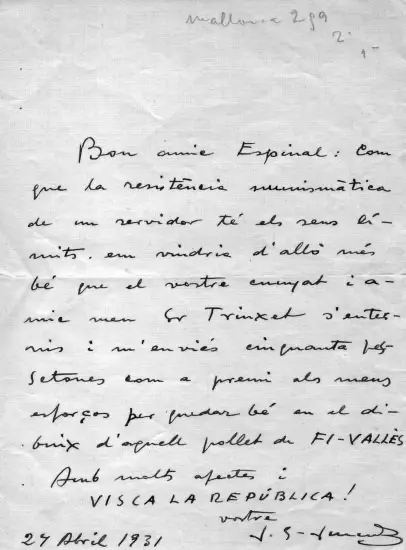 Mallorca 299
2º
1ª
Bon amic Espinal: Com
que la resistència numismàtica
de un servidor té els seus lí-
mits, em vindria d'allò més
bé que el vostre cunyat i a-
mic meu Sr Trinxet s'enter-
nís i m'enviés cinquanta pes-
setones com a premi als meus
esforços per quedar bé en el di-
buix d'aquell pollet de FI-VALLÈS
Amb molts afectes i
VISCA LA REPÚBLICA!
vostre
27 Abril 1931